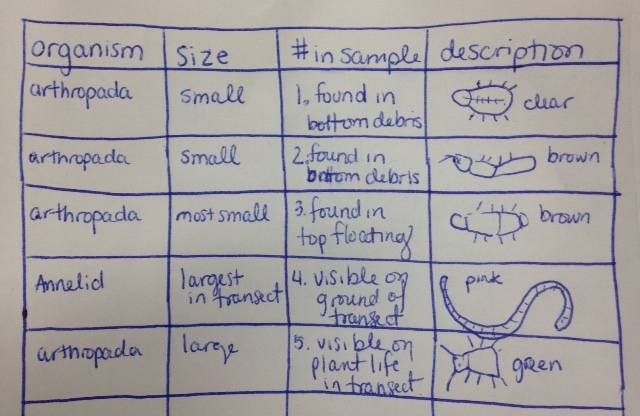 organism size # in sample description
arthropada small 1. found in
bottom debris clear
arthropada small 2. found in
bottom debris brown
arthropada most small 3. found in
top floating brown
Annelid largest
in transect 4. visible on
ground of
transect pink
arthropada large 5. visible on
plant life
in transect green